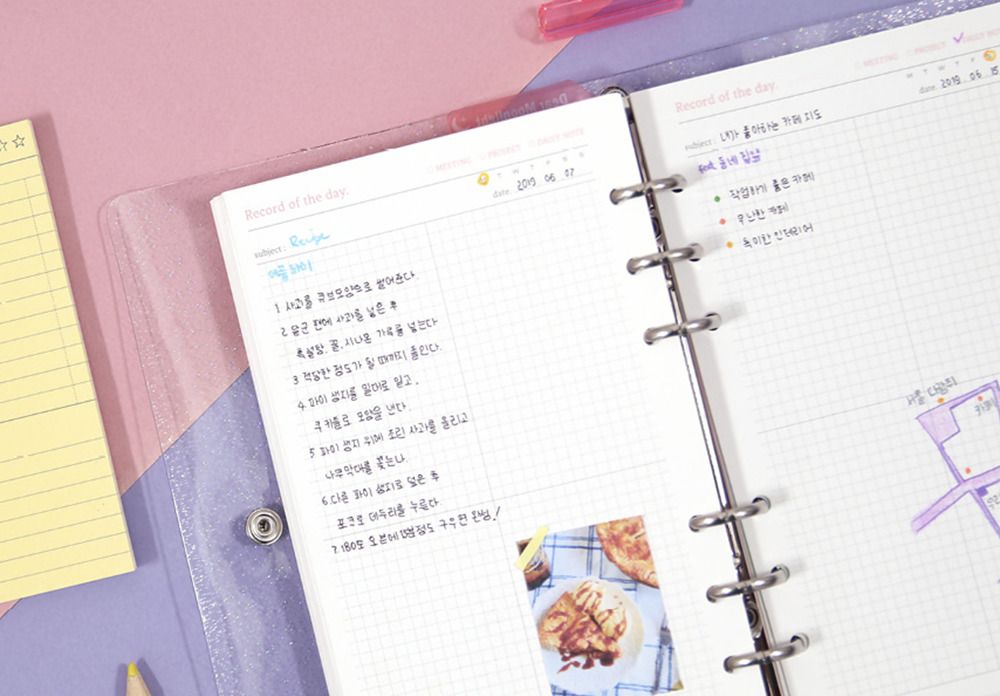 Dear Moonlight
Record of the day.
MEETING PROJECT DAILY NOTE
T W T F S S
date. 2019 06 07
subject : Recipe
애플파이
1. 사과를 큐브모양으로 썰어준다.
2. 달군 팬에 사과를 넣은 후
흑설탕, 꿀, 시나몬 가루를 넣는다
3. 적당한 정도가 될 때까지 졸인다.
4. 파이 생지를 밀대로 밀고,
쿠키틀로 모양을 낸다.
5. 파이 생지 위에 조린 사과를 올리고
나무막대를 꽂는다.
6. 다른 파이 생지로 덮은 후
포크로 테두리를 누른다
7. 180도 오븐에 정도 구우면 완성!
Record of the day.
MEETING PROJECT DAILY NOTE
M T W T F
date. 2019 06 15
subject : 내가 좋아하는 카페 지도
feat. 동네 집앞
작업하기 좋은 카페
무난한 카페
특이한 인테리어